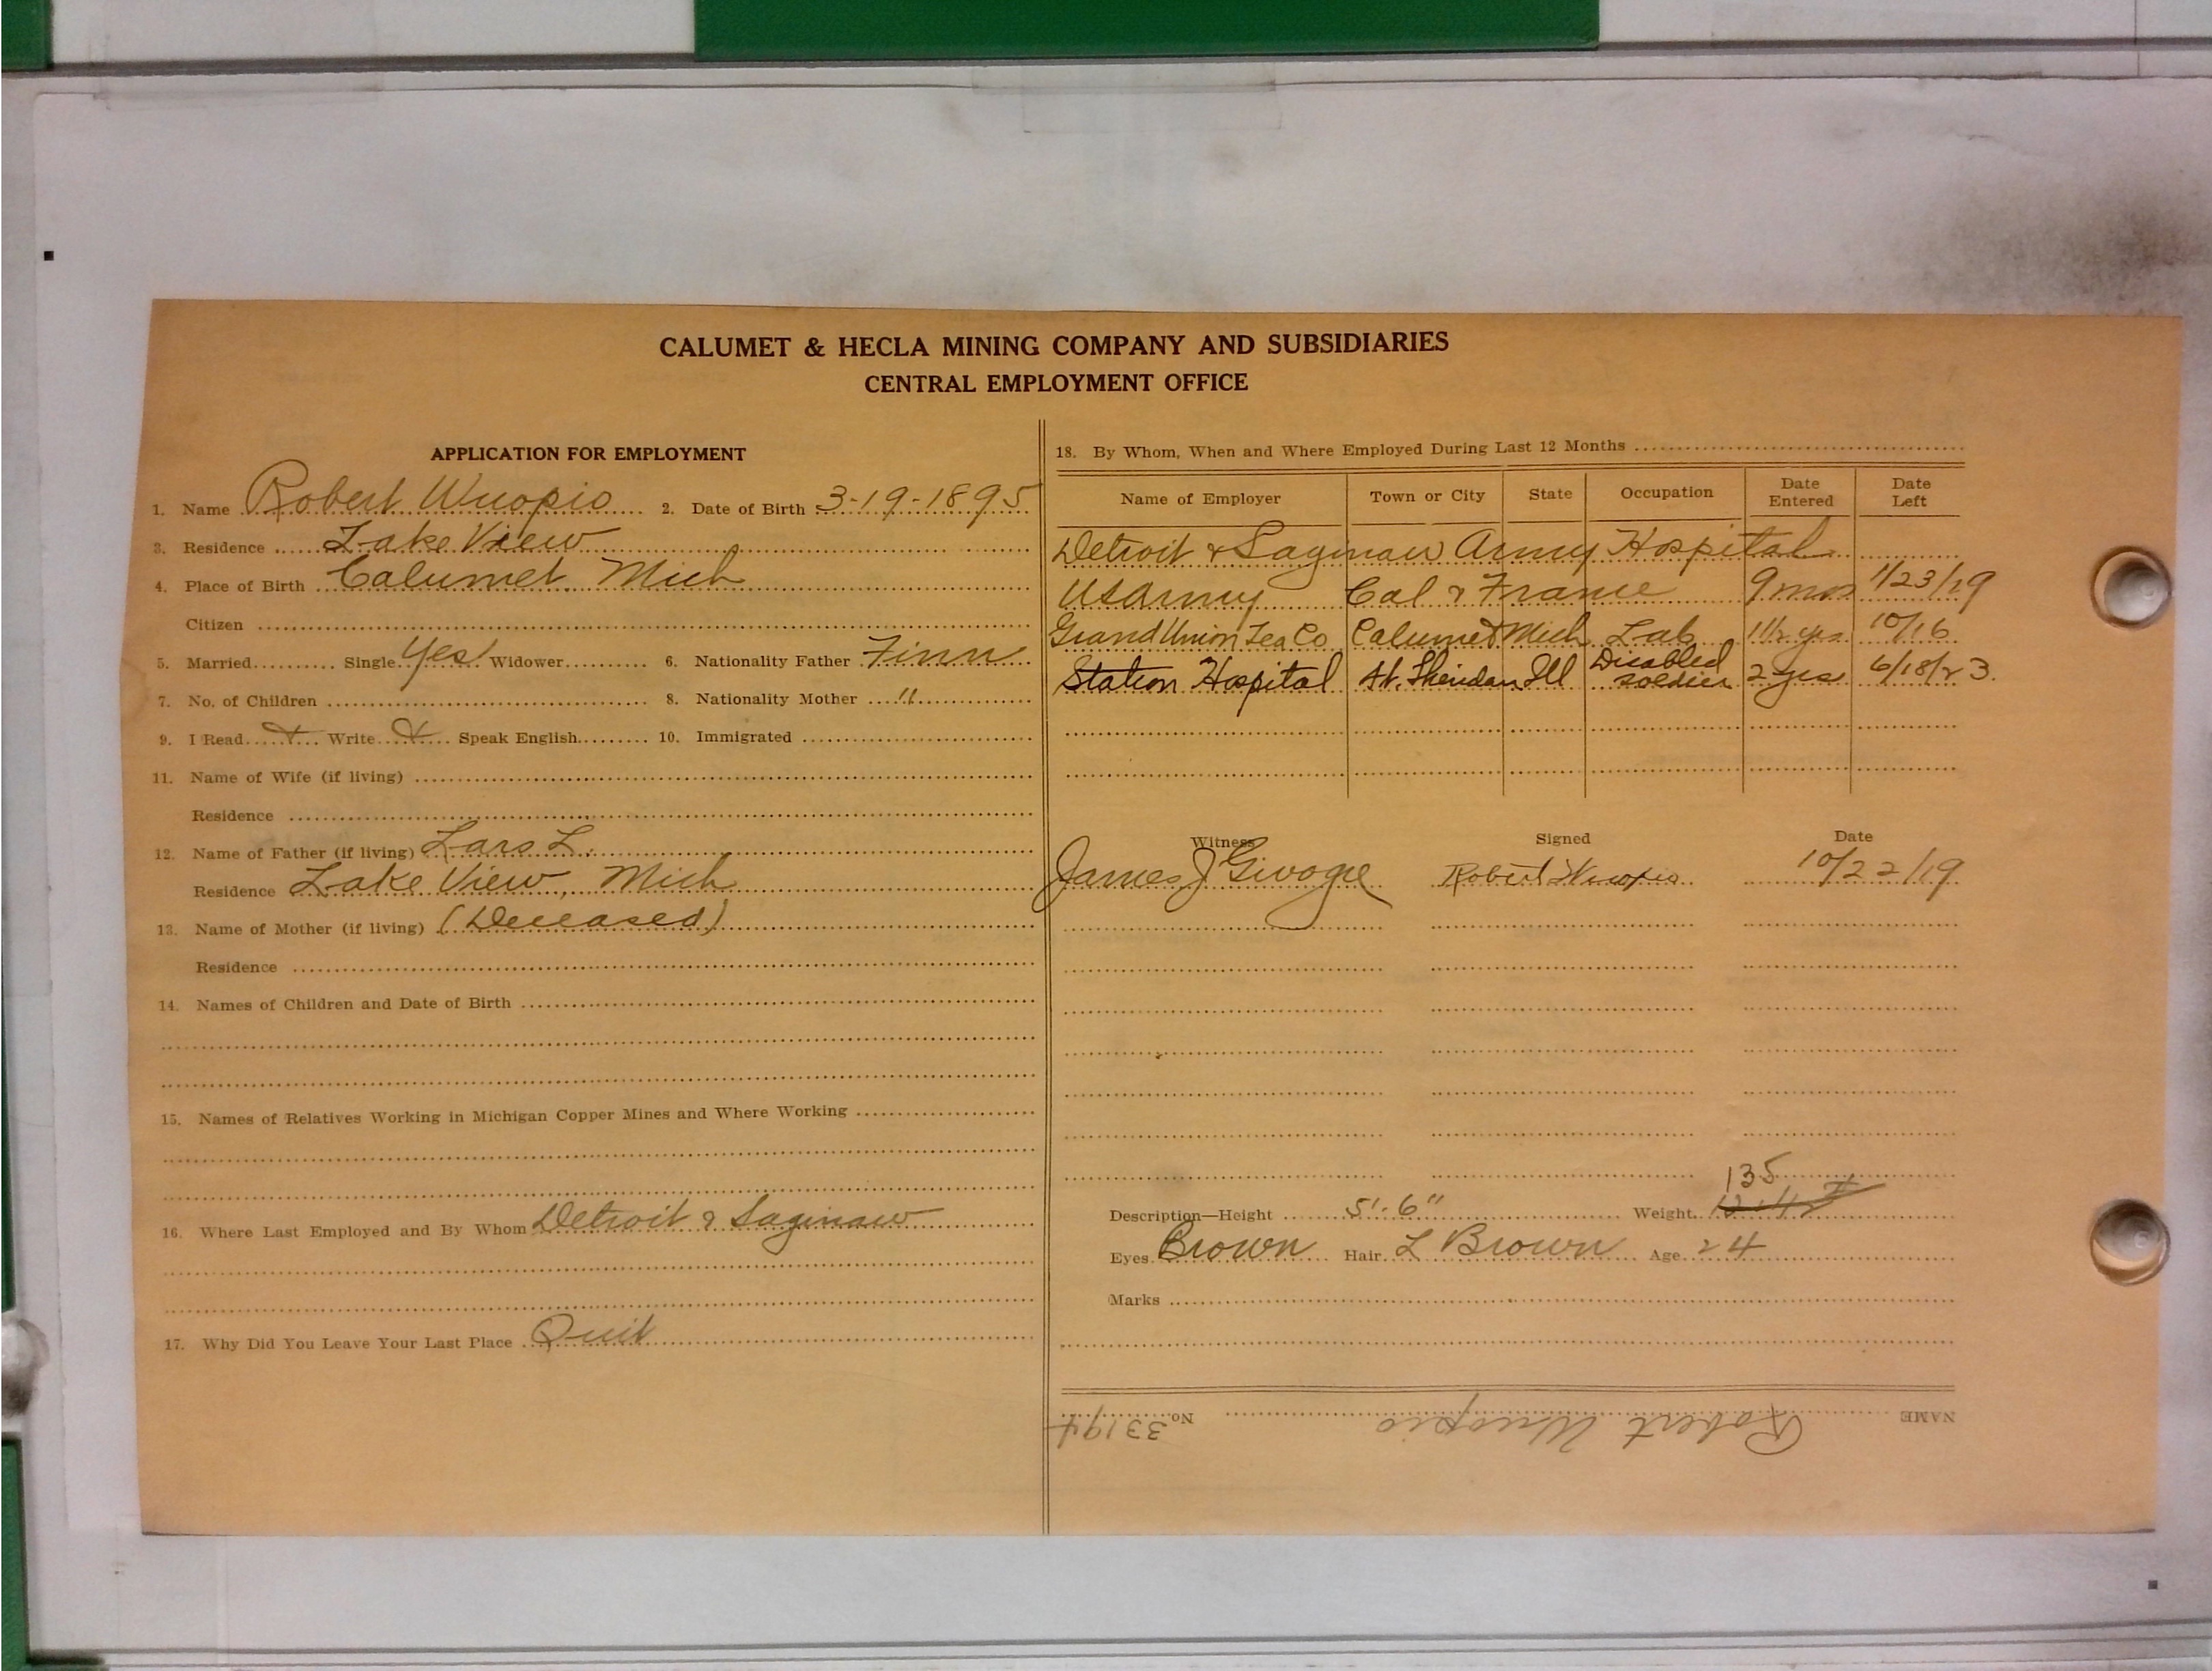 CALUMET & HECLA MINING COMPANY AND SUBSIDIARIES
CENTRAL EMPLOYMENT OFFICE
APPLICATION FOR EMPLOYMENT
1. Name Robert Wuopio 2. Date of Birth 3-19-1895
3. Residence Lake View
4. Place of Birth Calumet, Mich
Citizen
5. Married Single Yes Widower 6. Nationality Father Finn
7. No. of Children 8. Nationality Mother "
9. I Read X Write X Speak English 10. Immigrated
11. Name of Wife (if living)
Residence
12. Name of Father (if living) Lars L.
Residence Lake View, Mich
13. Name of Mother (if living) (Deceased)
Residence
14. Names of Children and Date of Birth
15. Names of Relatives Working in Michigan Copper Mines and Where Working
16. Where Last Employed and By Whom Detroit & Saginaw
17. Why Did You Leave Your Last Place Quit
18. By Whom, When and Where Employed During Last 12 Months
Name of Employer Town or City State Occupation Date Entered Date Left
Detroit & Saginaw Army Hospital
US Army Cal & France 9 mos 1/23/19
Grand Union Tea Co Calumet Mich Lab 1 1/2 yrs 10/16
Station Hospital Ft. Sheridan Ill Disabled soldier 2 yrs 6/18/23.
Witness Signed Date
James J Robert Wuopio 10/22/19
135
Description—Height 5'-6" Weight
Eyes Brown Hair L Brown Age 24
Marks
NAME Robert Wuopio No. 33194